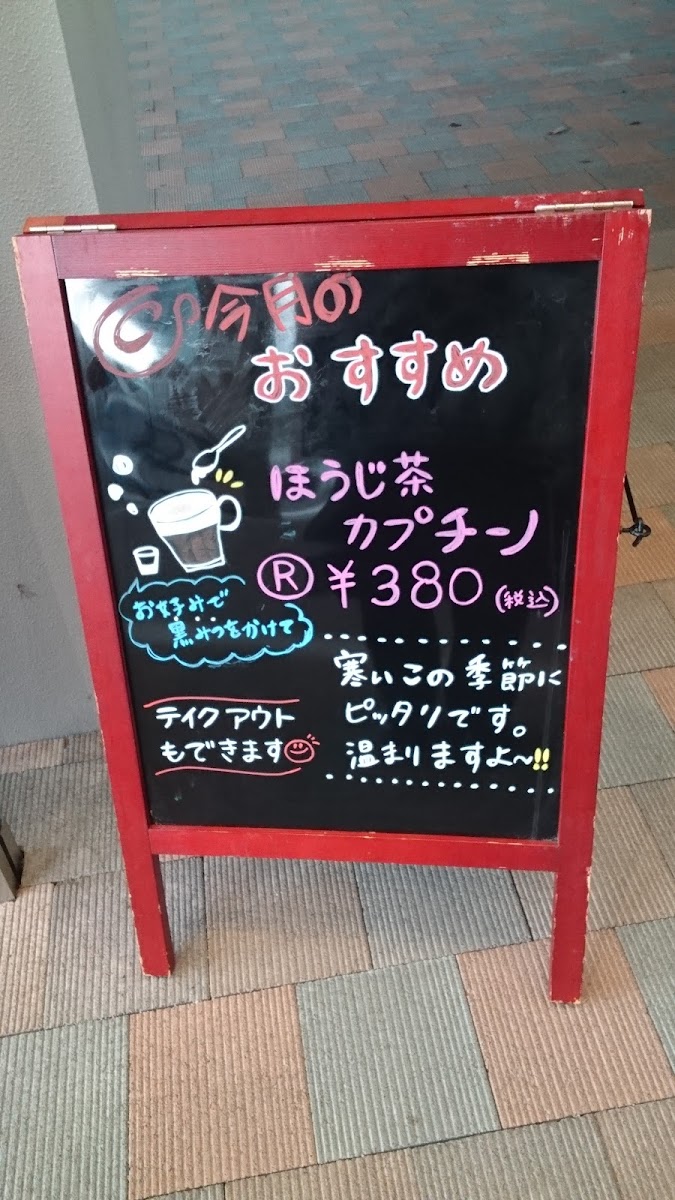 今月の
おすすめ
ほうじ茶
カプチーノ
Ⓡ ¥380 (税込)
お好みで
黒みつをかけて
寒いこの季節に
ピッタリです。
温まりますよ〜!!
テイクアウト
もできます